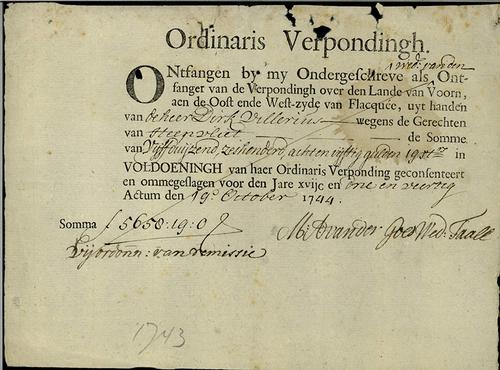 Ordinaris Verpondingh.
wed: van den
ONtfangen by my Ondergeschreve als Ont-
fanger van de Verpondingh over den Lande van Voorn,
aen de Oost ende West-zyde van Flacquée, uyt handen
van de heer Dirk Villerius wegens de Gerechten
van Steenvliet de Somme
van Vijfduijzend, zeshonderd, achtenvijftig gulden 19 st: in
VOLDOENINGH van haer Ordinaris Verponding geconsenteert
en ommegeslagen voor den Jare xvijc en one en veertig
Actum den 19e October 1744.
Somma f 5658:19:0
M: A vander Goes Wed: Taall
Bij ordonn: van remissie
1743